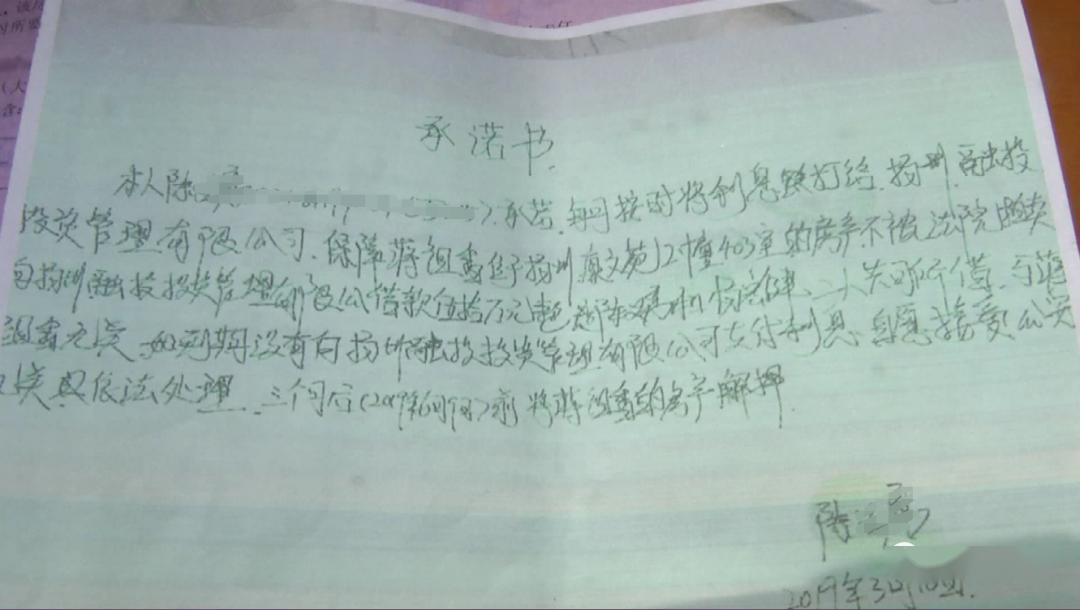 承诺书
本人陈 承诺,每月按时将利息钱打给扬州融投
投资管理有限公司,保障蒋祖 扬州康文苑12幢403室的房产不被法院拍卖
向扬州融投投资管理有限公司借款伍拾万元 二人共同所借,与蒋
祖 无关 如到期没有向扬州融投投资管理有限公司支付利息,自愿接受公安
依法处理 三个月后(2019年6月9日)前将蒋祖 的房产解押
陈
2019年3月10日